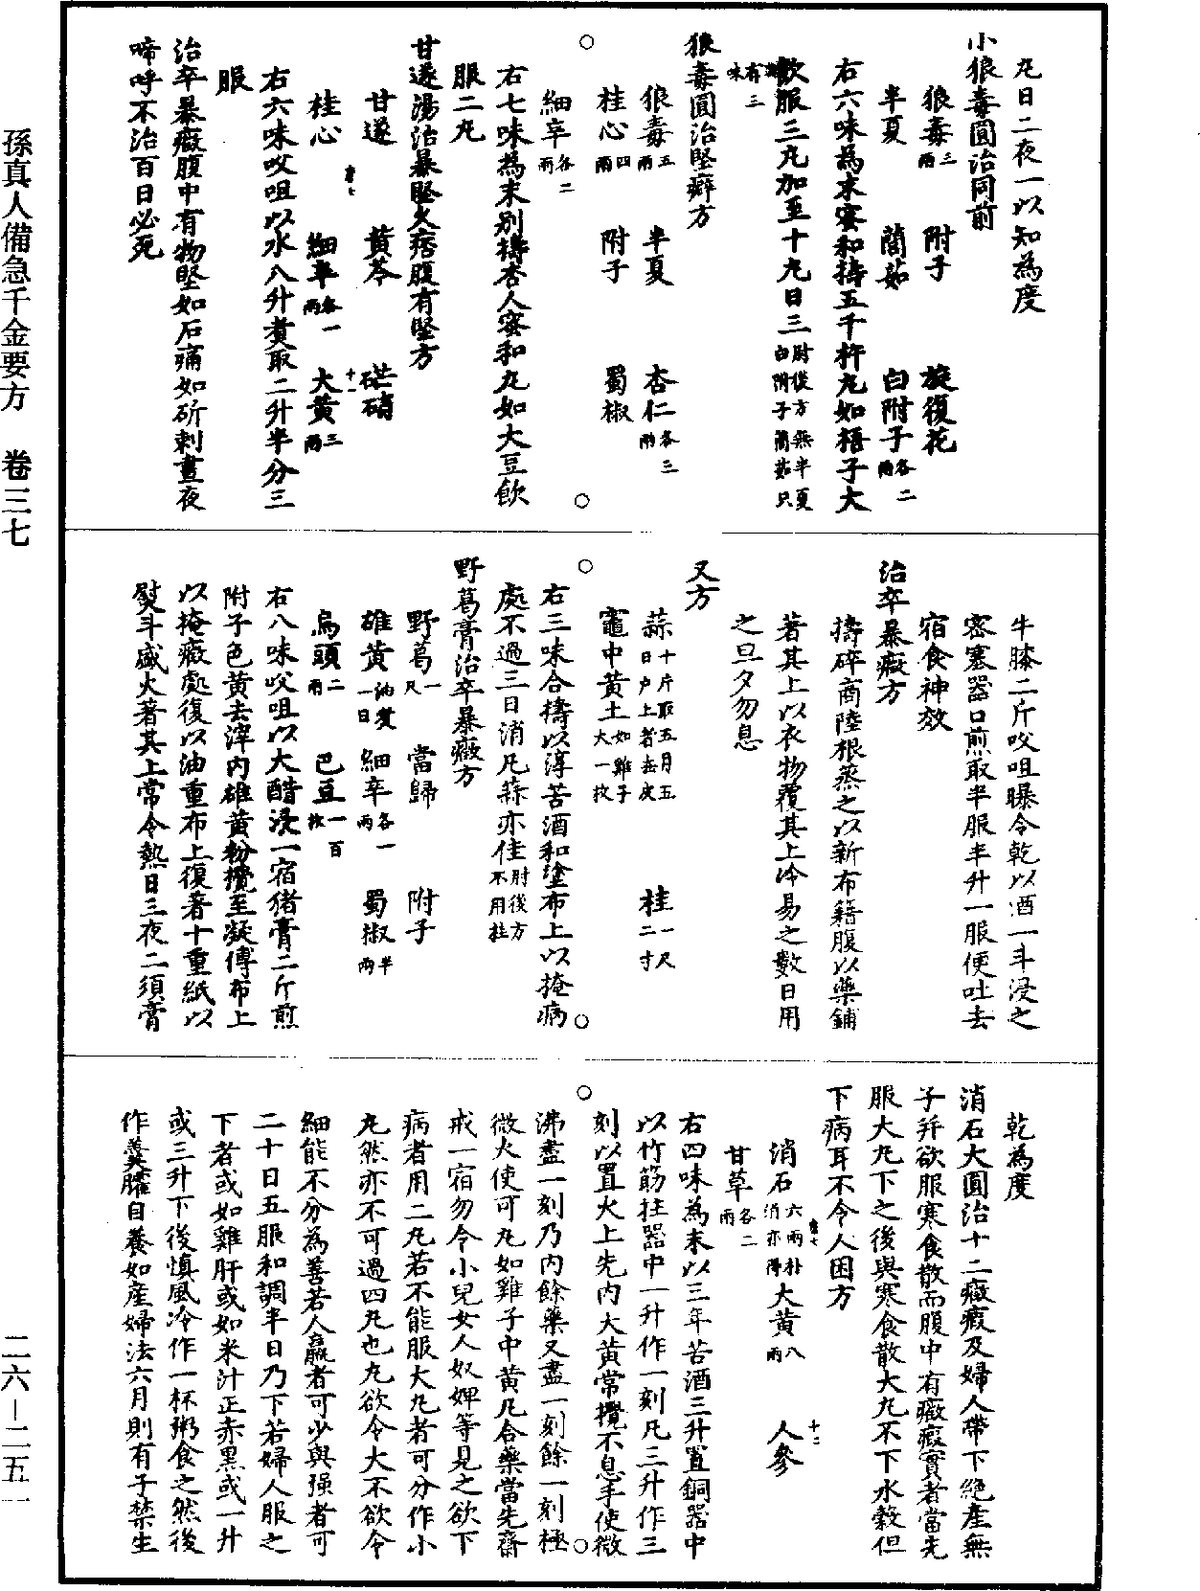 丸日二夜一以知為度
小狼毒圓治同前
狼毒三兩 附子 旋復花
半夏 䕡茹 白附子各二兩
右六味為末蜜和擣五千杵丸如梧子大
飲服三丸加至十丸日三肘後方無半夏白附子䕡茹只有三味
狼毒圓治堅癖方
狼毒五兩 半夏 杏仁各三兩
桂心四兩 附子 蜀椒
細辛各二兩
右七味為末別擣杏人蜜和丸如大豆飲
服二丸
甘遂湯治暴堅久痞腹有堅方
甘遂 黃芩 芒硝
桂心 細辛各一兩 大黃三兩
右六味㕮咀以水八升煑取二升半分三
服
治卒暴癥腹中有物堅如石痛如斫刺晝夜
啼呼不治百日必死
牛膝二斤㕮咀曝令乾以酒一斗浸之
密塞器口煎取半服半升一服便吐去
宿食神效
治卒暴癥方
擣碎商陸根蒸之以新布籍腹以藥鋪
著其上以衣物覆其上冷易之數日用
之旦夕勿息
又方
蒜十斤取五月五日戶上者去皮 桂一尺二寸
竈中黃土如雞子大一枚
右三味合擣以淳苦酒和塗布上以掩病
處不過三日消凡蒜亦佳肘後方不用桂
野葛膏治卒暴癥方
野葛一尺 當歸 附子
雄黃油煑一日 細辛各一兩 蜀椒半兩
烏頭二兩 巴豆一百枚
右八味㕮咀以大醋浸一宿猪膏二斤煎
附子色黃去滓内雄黃粉攪至凝傅布上
以掩癥處復以油重布上復著十重紙以
熨斗盛火著其上常令熱日三夜二須膏
乾為度
消石大圓治十二癥瘕及婦人帶下絶產無
子并欲服寒食散而腹中有癥瘕實者當先
服大丸下之後與寒食散大丸不下水穀但
下病耳不令人困方
消石六兩朴消亦得 大黃八兩 人參
甘草各二兩
右四味為末以三年苦酒三升置銅器中
以竹筋拄器中一升作一刻凡三升作三
刻以置火上先内大黃常攪不息手使微
沸盡一刻乃内餘藥又盡一刻餘一刻極
微火使可丸如雞子中黃凡合藥當先齋
戒一宿勿令小兒女人奴婢等見之欲下
病者用二丸若不能服大丸者可分作小
丸然亦不可過四丸也丸欲令大不欲令
細能不分為善若人羸者可少與强者可
二十日五服和調半日乃下若婦人服之
下者或如雞肝或如米汁正赤黑或一升
或三升下後慎風冷作一杯粥食之然後
作羹臛自養如產婦法六月則有子禁生
孫真人備急千金要方 卷三七
二六－二五一